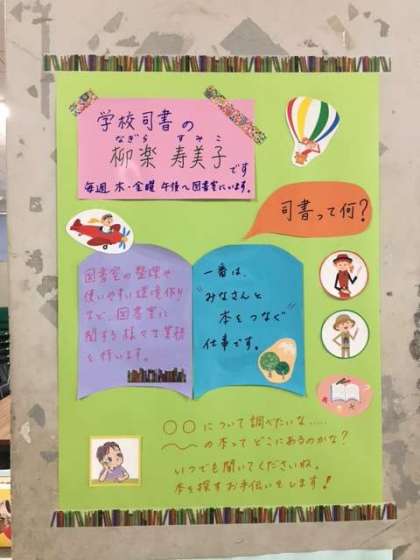 学校司書の
なぎら すみこ
柳楽 寿美子です
毎週 木・金曜 午後へ図書室にいます。
司書って何?
図書室の整理や
使いやすい環境作り
など、図書室に
関する様々な業務
を行います。
一番は、
"みなさんと
本をつなぐ"
仕事です。
〇〇について調べたいな.....
〜の本ってどこにあるのかな?
いつでも聞いてくださいね。
本を探すお手伝いをします!